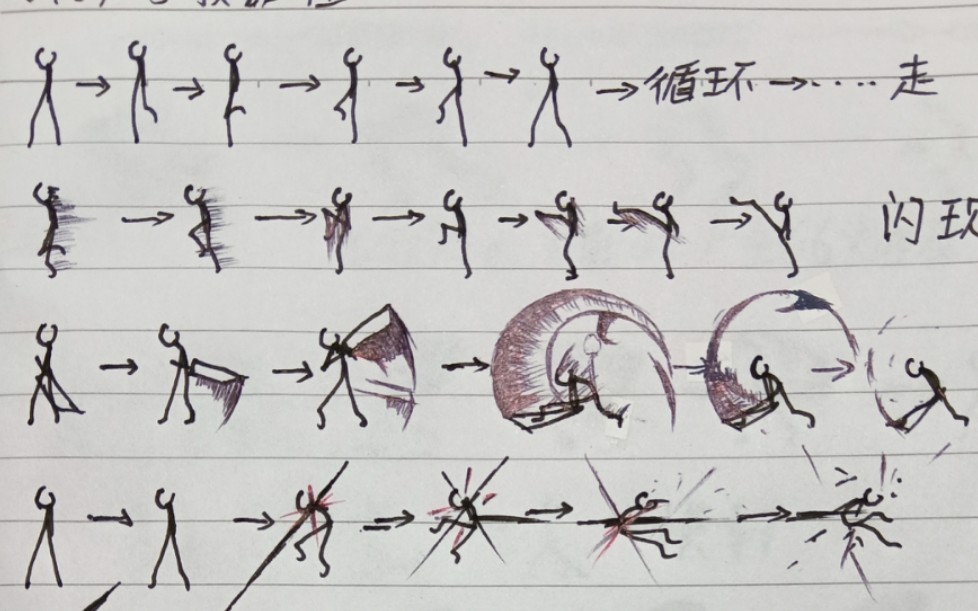 循环 → ····· 走
闪现